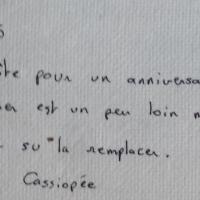 pour un anniversa
est un peu loin m
su la remplacer.
Cassiopée